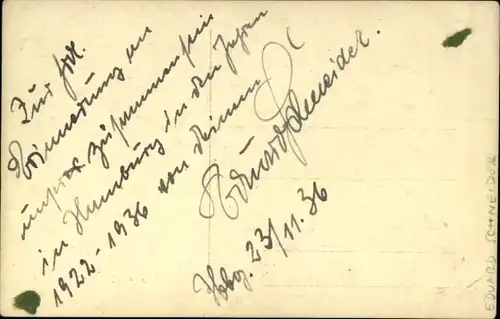 Zur frdl.
Erinnerung an
unser Zusammensein
in Hamburg in den Jahren
1922-1936 von Deinem
Eduard Schneider.
Hbg. 23/11.36
EDUARD SCHNEIDER